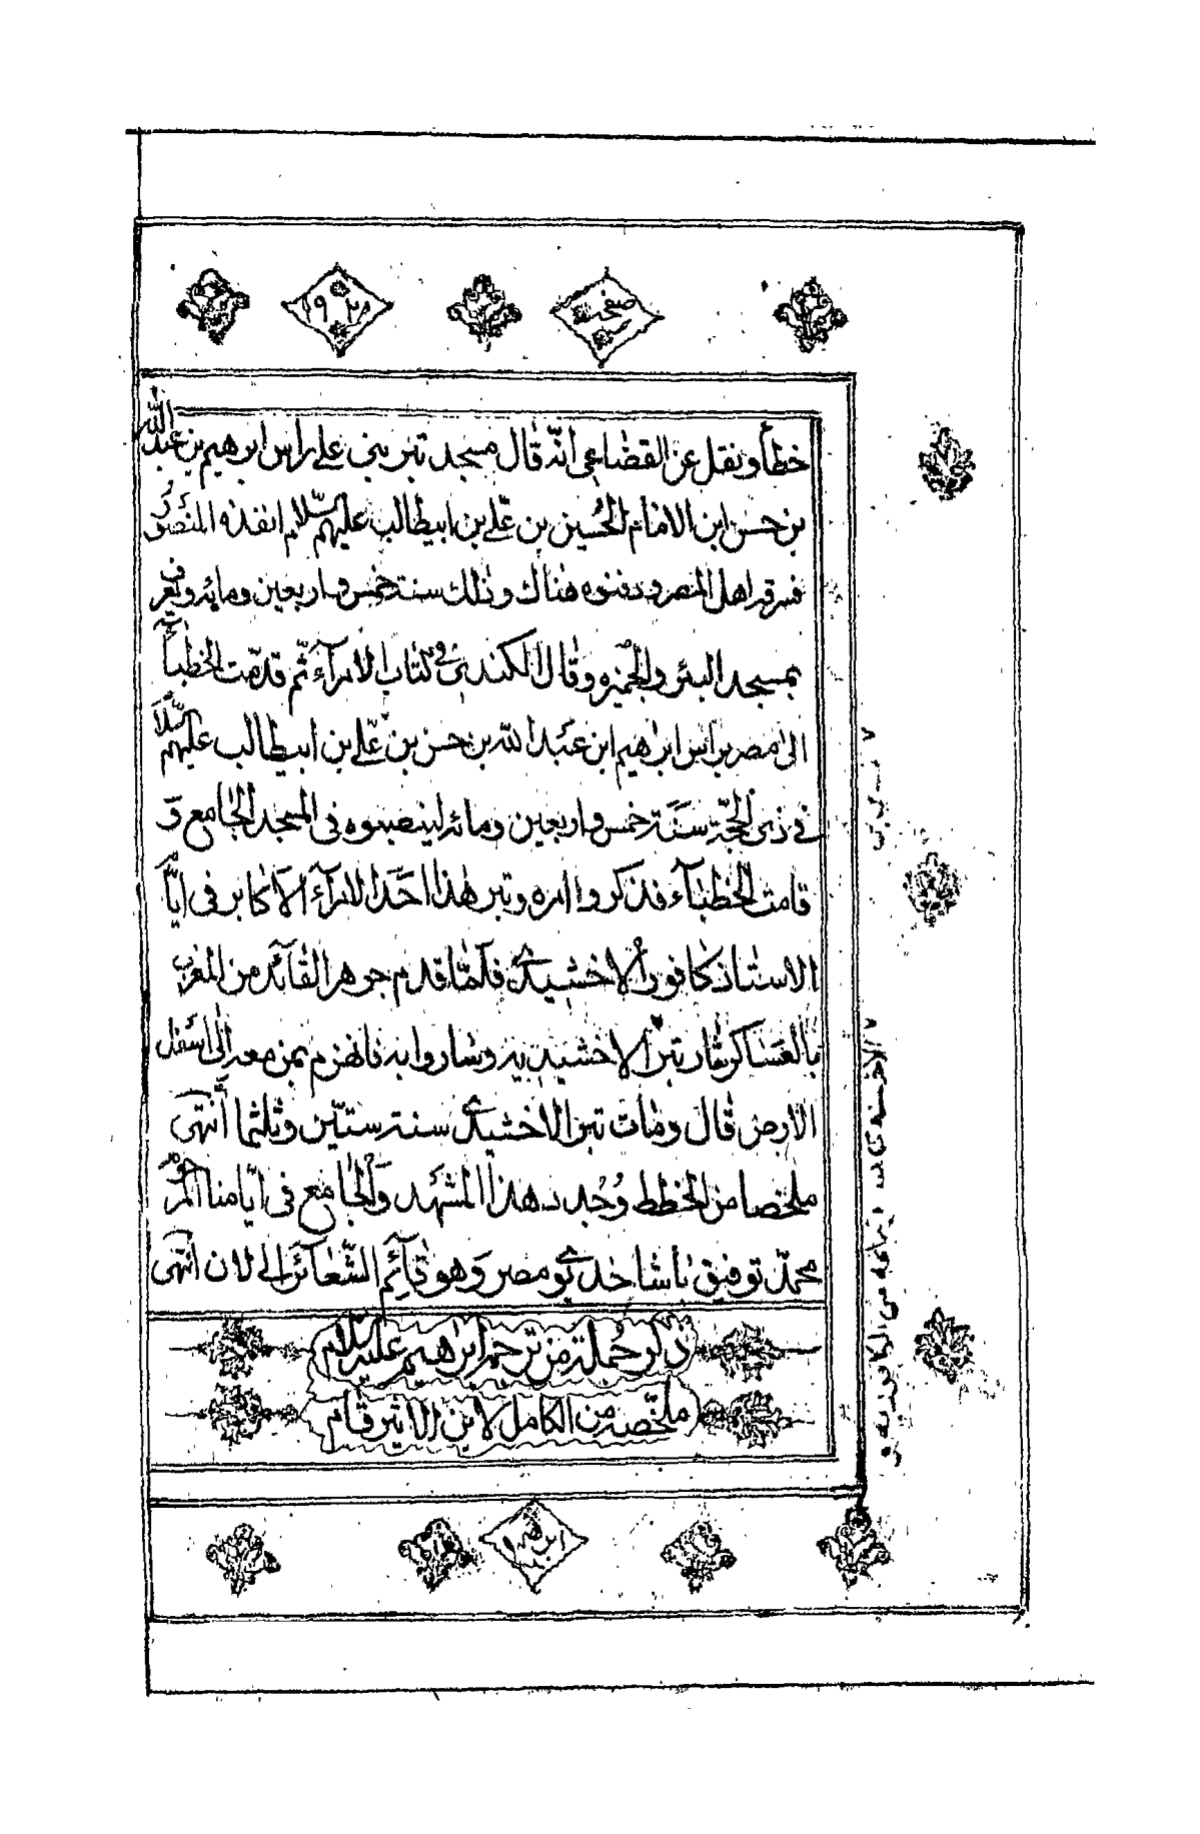 صفحة
خطأ ونقل عن القضاعي أنّه قال مسجد تبر بنى على راس ابرهيم بن عبد الله
بن حسن ابن الامام الحُسين بن عليّ بن ابيطالب عليهم السّلام انفذه المنصور
فسرقه اهل المصر ودفنوه هناك وذلك سنة خمس واربعين ومائه ويعرف
بمسجد البئر والجميزه وقال الكندى في كتاب الامرآء ثمّ قدمت الخطبآء
الى مصر براس ابرهيم ابن عبد الله بن حسن بن عليّ بن ابيطالب عليهم السّلام
في ذى الحجّة سنة خمس واربعين ومائة لينصبوه فى المسجد الجامع وَ
قامت الخطبآء فذكروا امره وتبر هذا احَد الامرآء الاكابر فى ايّام
الاستاذ كافور الاخشيدي فلمّا قدم جوهر القآئد من المغرب
بالعَساكر ثار تبر الاخشيديه وحاربه فانهزم بمن معه الى اسفل
الارض قال ومات تبر الاخشيدي سنة ستّين وثلثمائة انتهى
ملخصا من الخطط وجُدد هذا المشهَد وَالجامع فى ايّامنا
محمّد توفيق باشا خديو مصر وَهو قآئم الشّعآئر الى الان انتهى
ذكر جُملة من ترجمة ابرهيم عليه السّلام
ملخّصه من الكامل لابن الاثير قام